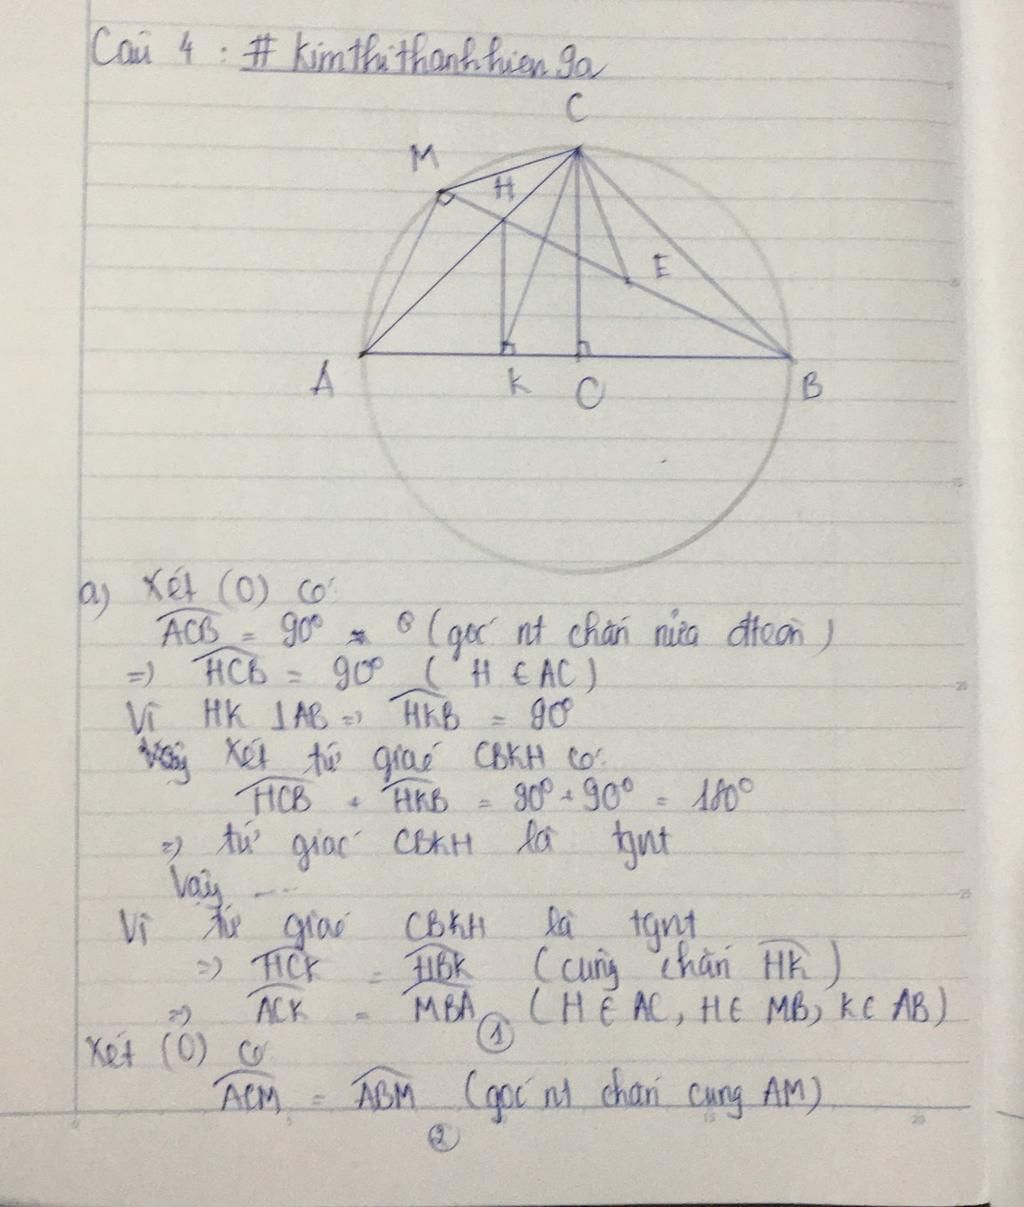 Câu 4 : # kimthithanhhien9a
C
M
H
E
A
K
O
B
a) Xét (O) có:
ACB = 90° (góc nt chắn nửa đtròn)
=) HCB = 90° ( H ∈ AC )
Vì HK ⊥ AB =) HKB = 90°
Xét tứ giác CBKH có:
HCB + HKB = 90° + 90° = 180°
=) tứ giác CBKH là tgnt
Vậy ....
Vì tứ giác CBKH là tgnt
=) HCK = HBK (cùng chắn HK)
=) ACK = MBA (H ∈ AC, H ∈ MB, K ∈ AB)
1
Xét (O) có
ACM = ABM (góc nt chắn cung AM)
2